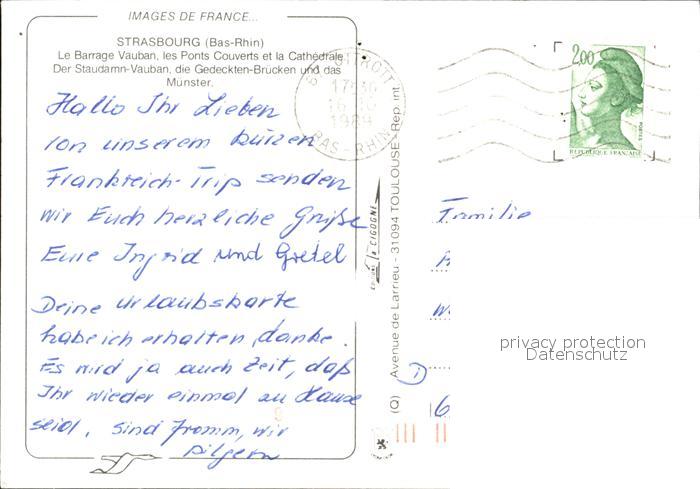 IMAGES DE FRANCE...
STRASBOURG (Bas-Rhin)
Le Barrage Vauban, les Ponts Couverts et la Cathédrale
Der Staudamn-Vauban, die Gedeckten-Brücken und das
Münster.
Hallo Ihr Lieben
von unserem kurzen
Frankreich-Trip senden
wir Euch herzliche Grüße
Eure Ingrid und Gretel
Deine Urlaubskarte
habe ich erhalten, danke.
Es wird ja auch Zeit, daß
Ihr wieder einmal zu Hause
seid. Sind fromm, wir
pilgern
17H30
16-10
1989
BAS-RHIN
EDITIONS la CIGOGNE
(Q) Avenue de Larrieu - 31094 TOULOUSE - Rep. int.
2,00
POSTES
REPUBLIQUE FRANÇAISE
Familie
privacy protection
Datenschutz